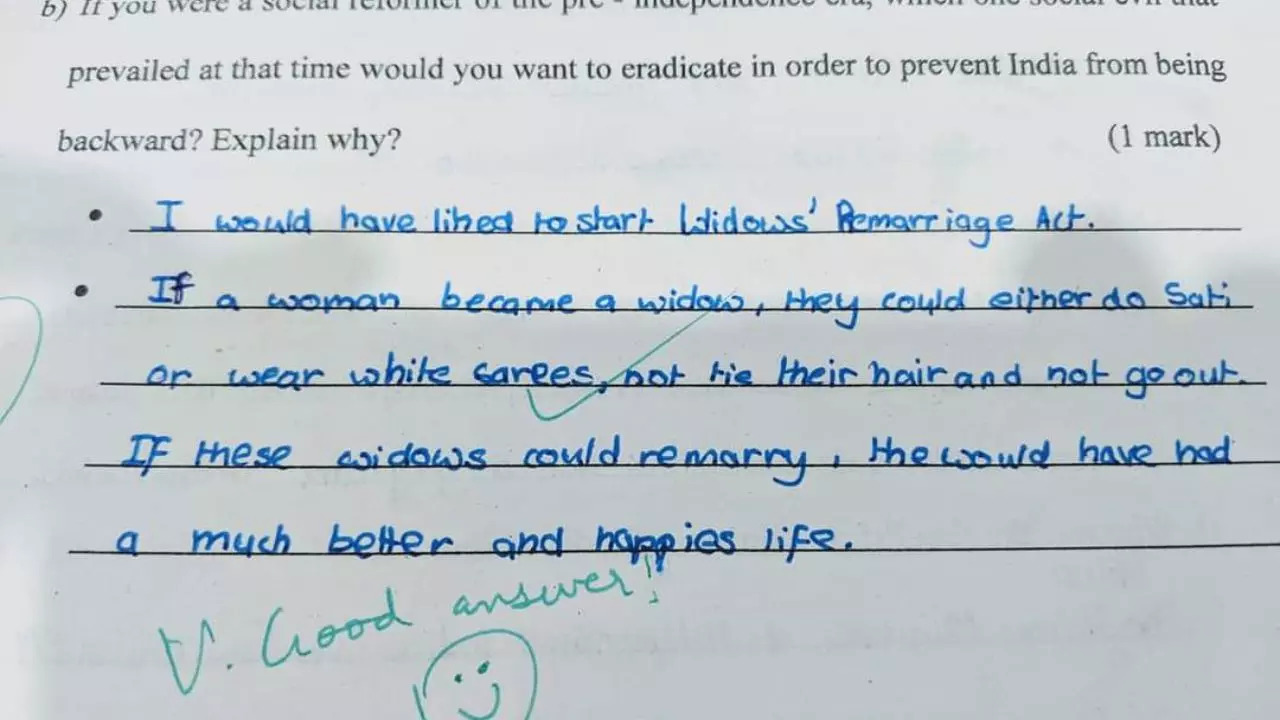 b) If you were a social reformer of the pre - independence era, which one social evil that
prevailed at that time would you want to eradicate in order to prevent India from being
backward? Explain why? (1 mark)
• I would have liked to start Widows' Remarriage Act.
• If a woman became a widow, they could either do Sati
or wear white sarees, not tie their hair and not go out.
If these widows could remarry, the would have had
a much better and happies life.
V. Good answer!